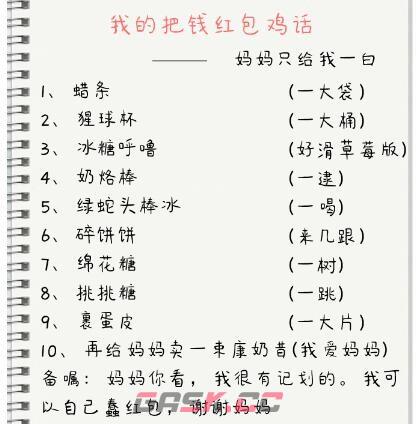 我的把钱红包鸡话
—— 妈妈只给我一白
1、蜡条 (一大袋)
2、猩球杯 (一大桶)
3、冰糖呼噜 (好滑草莓版)
4、奶烙棒 (一逮)
5、绿蛇头棒冰 (一喝)
6、碎饼饼 (来几跟)
7、绵花糖 (一树)
8、挑挑糖 (一跳)
9、裹蛋皮 (一大片)
10、再给妈妈卖一束康奶昔(我爱妈妈)
备嘱：妈妈你看，我很有记划的。我可
以自己蠢红包，谢谢妈妈